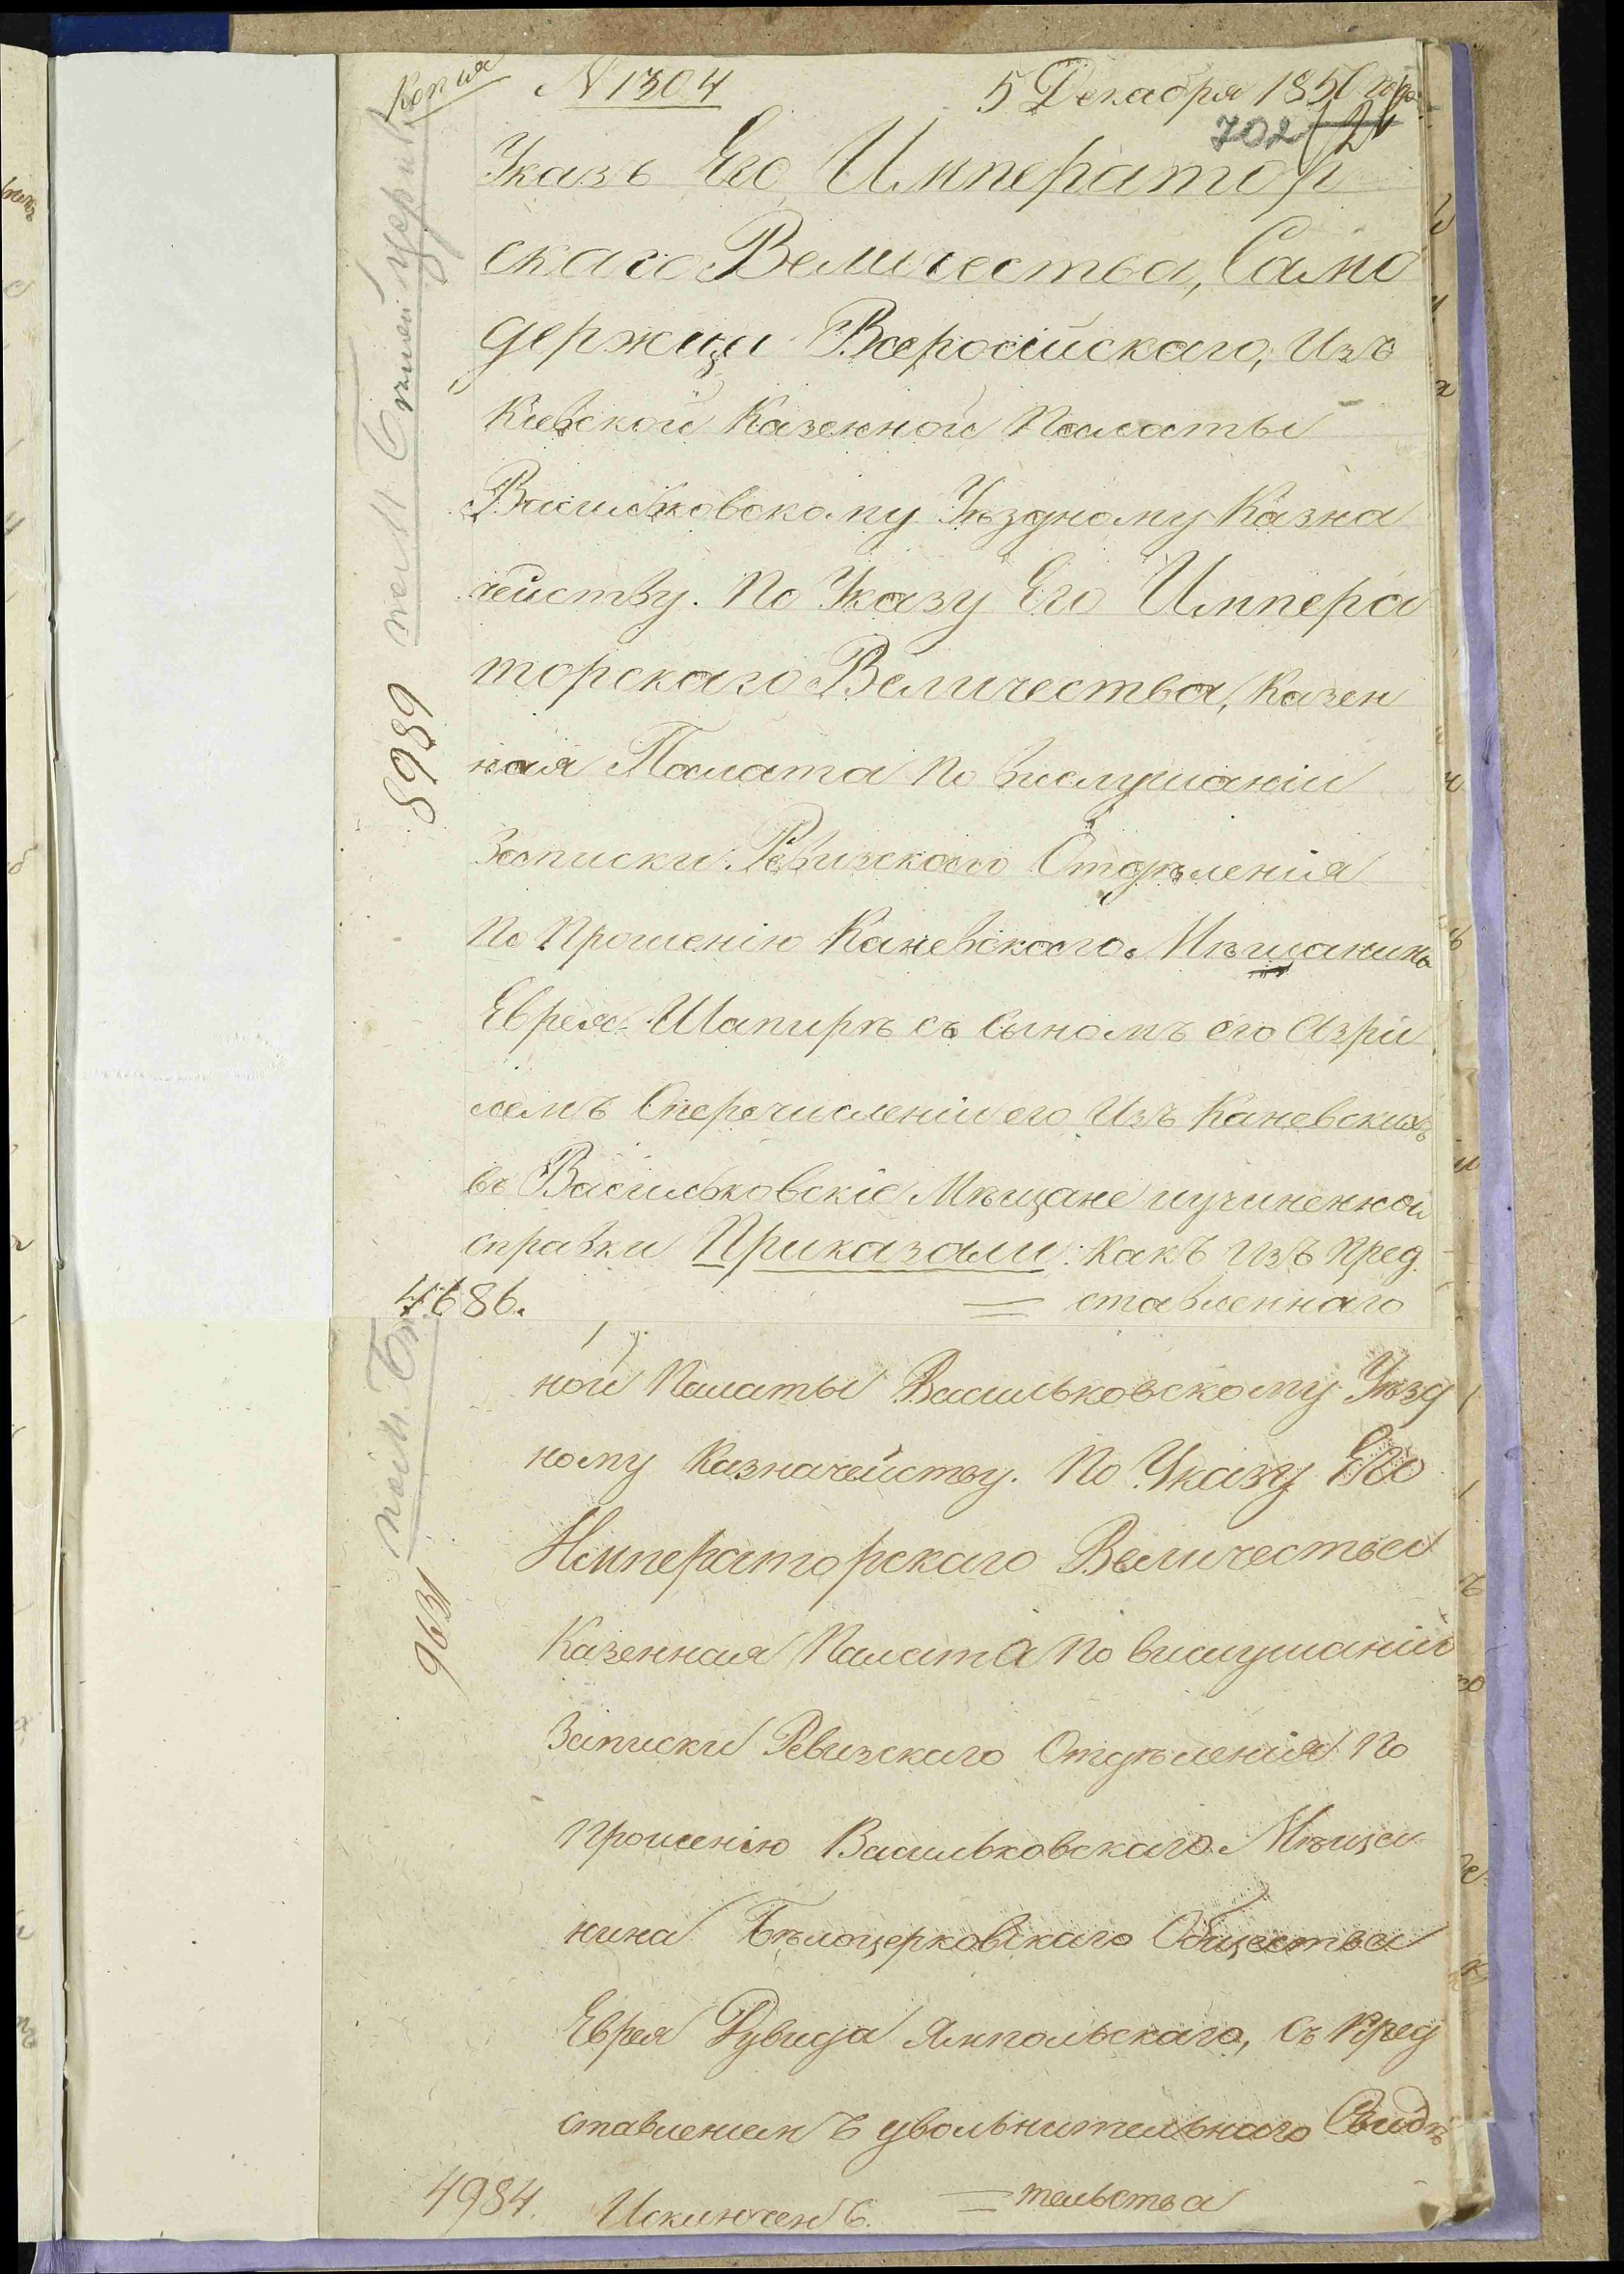 Копия
№ 1304
5 Декабря 1850 года
702
Указъ Его Император
скаго Величества, Само
держца Всеросійскаго, Изъ
Кіевской Казенной Палаты
Васильковскому Уѣздному Казна
чейству. По Указу Его Импера
торскаго Величества, Казен
ная Палата по выслушаніи
Записки Ревизскаго Отдѣленія
По Прошенію Каневскаго Мѣщанина
Еврея Шапирѣ съ Сыномъ его Азри
лемъ Оперечисленіи его Изъ Каневскихъ
въ Васильковскіе Мѣщане иучиненной
справки Приказали: какъ Изъ Пред
ставленнаго
4686.
8989
ной Палаты Васильковскому Уѣзд
ному Казначейству. По Указу Его
Императорскаго Величества
Казенная Палата по выслушаніи
Записки Ревизскаго Отдѣленія По
прошенію Васильковскаго Мѣща
нина Бѣлоцерковскаго Общества
Еврея Дувида Ямпольскаго, съ пред
ставленіемъ увольнительнаго Свидѣ
тельства
4984.
Исключенъ.
9631